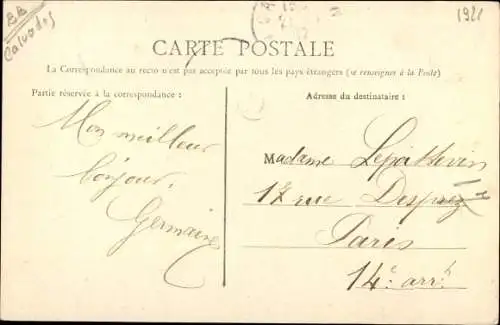 BB
Calvados
1921
CARTE POSTALE
La Correspondance au recto n'est pas acceptée par tous les pays étrangers (se renseigner à la Poste)
Partie réservée à la correspondance :
Adresse du destinataire :
Mon meilleur
bonjour.
Germaine
Madame
17 rue Desprez
Paris
14e arrt